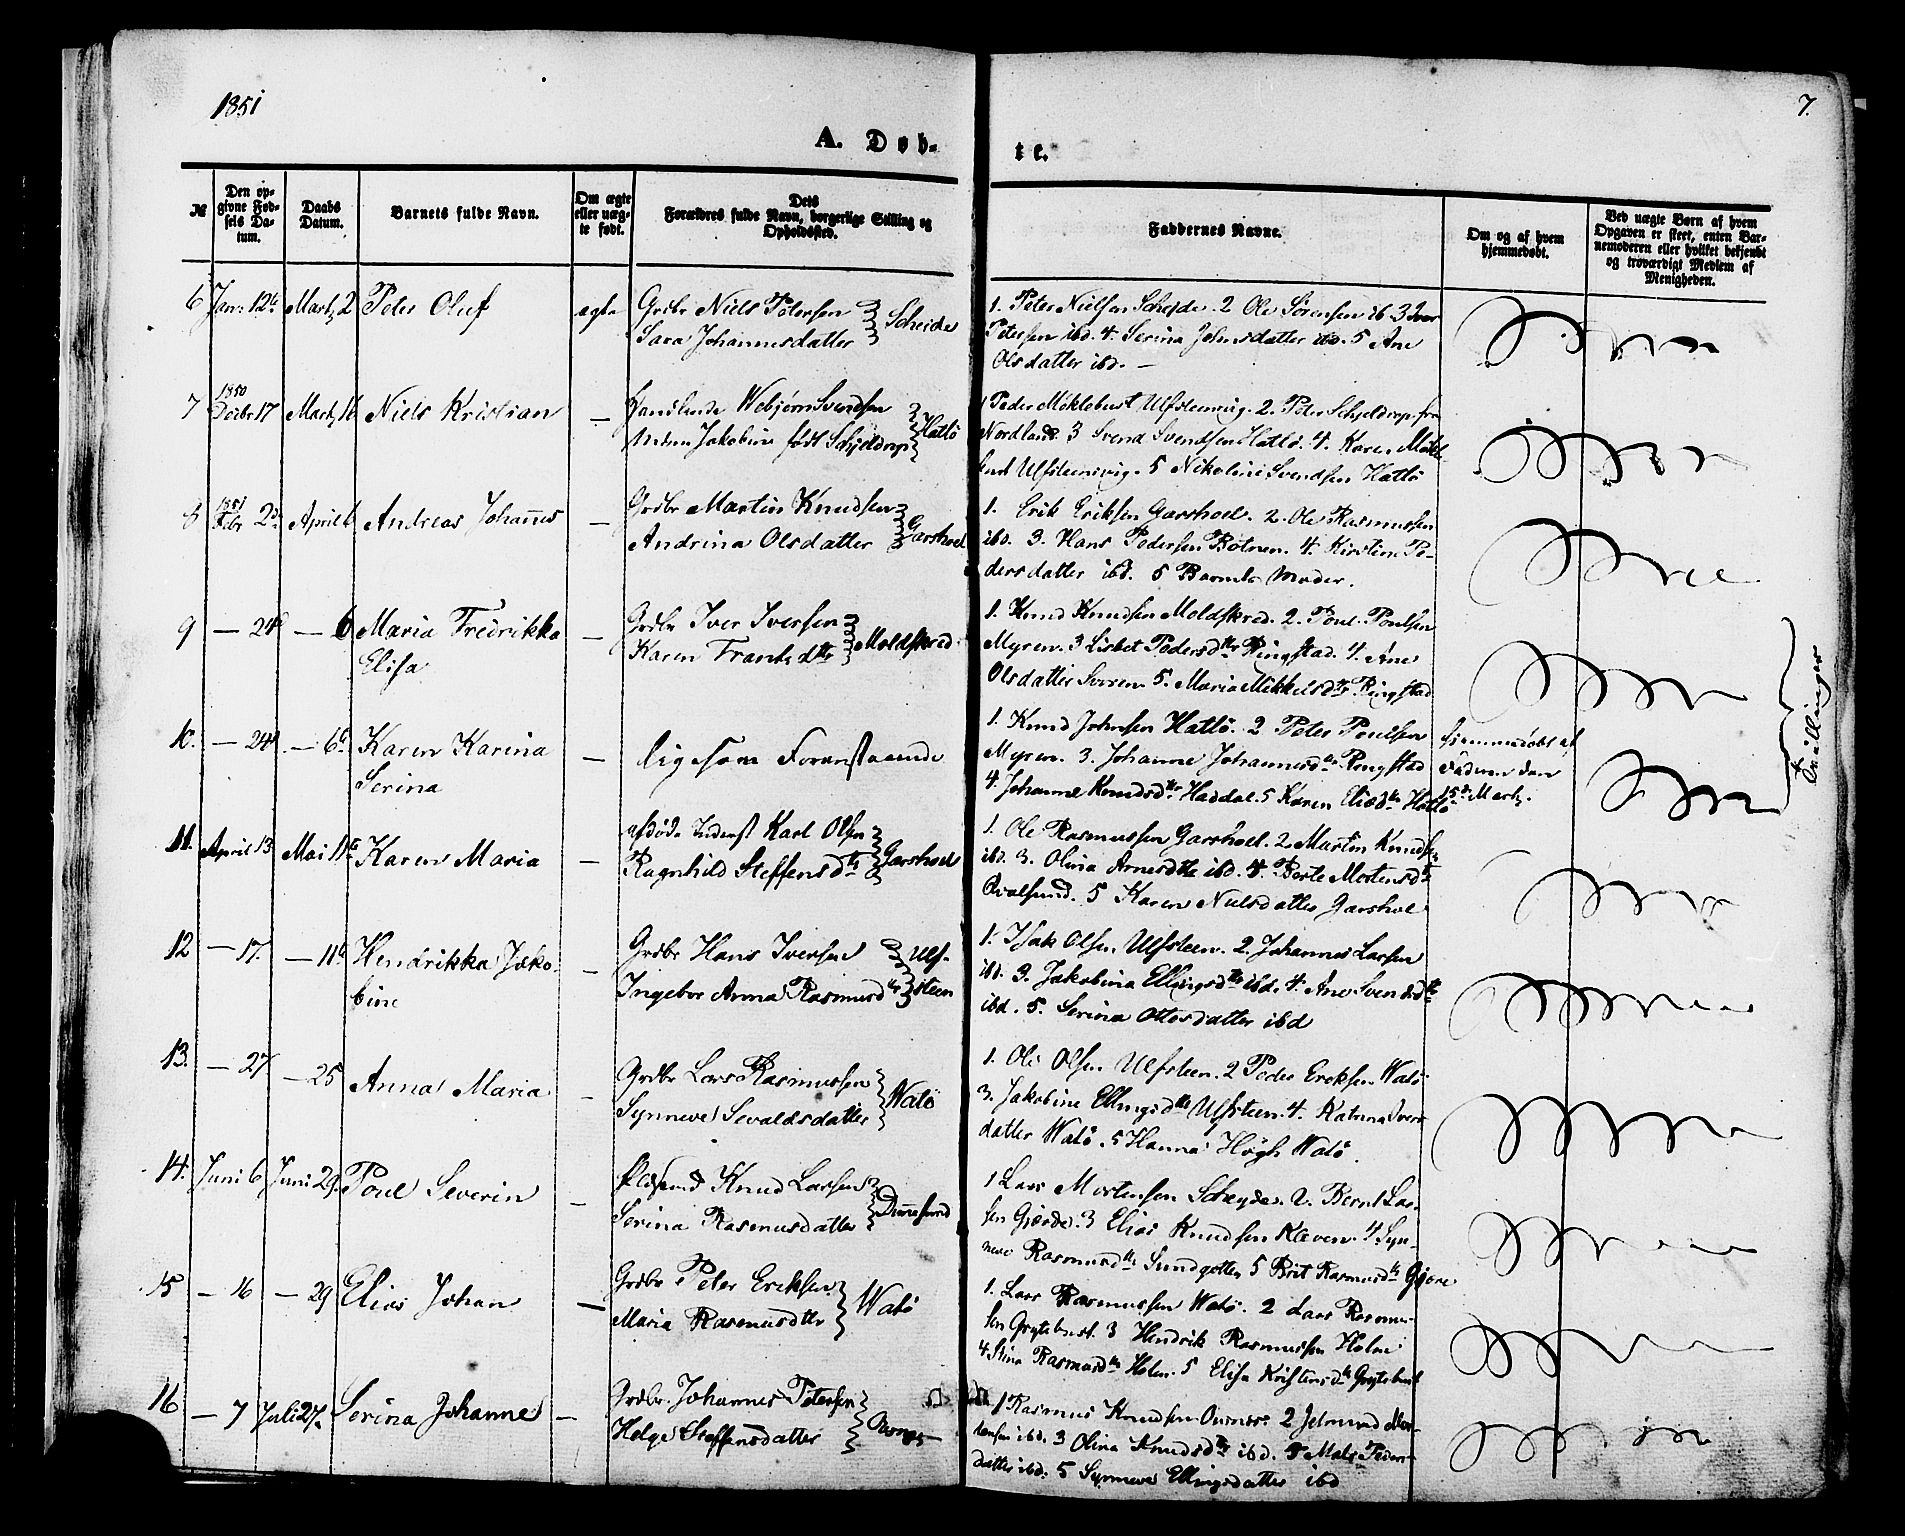 1851
7.
A. Døb-
te.
№
Den op-
givne Fød-
sels Da-
tum.
Daabs
Datum.
Barnets fulde Navn.
Om ægte
eller uæg-
te født.
Dets
Forældres fulde Navn, borgerlige Stilling og
Opholdssted.
Faddernes Navne.
Om og af hvem
hjemmedøbt.
Ved uægte Børn af hvem
Opgaven er skeet, enten Bar-
nemoderen eller hvilket bekjendt
og troværdigt Medlem af
Menigheden.
6 Jan: 12te Marts 2 Peter Oluf ægte Grdbr Niels Petersen
Sara Johannesdatter Scheide
1. Peter Nielsen Scheide. 2 Ole Sørensen ib 3 Iver
Petersen ibd. 4. Serina Johnsdatter ibd. 5 Ane
Olsdatter ibd. —
7 1850
Decbr 17 Marts 16 Niels Kristian — Handlende Webjørn Svendsen
Andrea Jakobine født Schjeldrup Hatlö
1 Peder Möklebust Ulfsteenvig. 2. Peter Schjeldrop fra
Nordland. 3 Svend Svendsen Hatlö. 4. Karen Mökle-
bust Ulfsteensvig. 5 Nikoline Svendsen Hatlö
8 1851
Febr 2den April 6 Andreas Johannes — Grdbr Martin Knudsen
Andrina Olsdatter Garshoel
1. Erik Eriksen Garshoel. 2. Ole Rasmussen
ibd. 3. Hans Pedersen Botnen. 4. Kirsten Pe-
dersdatter ibd. 5 Barnets Moder.
9 — 24de — 6 Maria Fredrikka
Elisa — Grdbr Iver Iversen
Karen Frantsdtr Moldskred
1. Knud Knudsen Moldskred. 2. Poul Poulsen
Myren. 3 Lisbet Pedersdtr Ringstad. 4. Ane
Olsdatter 5. Maria Mikkelsdtr Ringstad
10. — 24de — 6te Karen Karina
Serina — ligesom Foranstaaende
1. Knud Johnsen Hatlö. 2 Peter Poulsen
Myren. 3. Johanne Johannesdtr Ringstad
4. Johanne Knudsdtr Haddal. 5 Karen Eliasdtr Hatlö
hjemmedøbt af
Faderen den
15de Marts.
Tvillinger
11. April 13 Mai 11te Karen Maria — afdøde Inderst Karl Olsen
Ragnhild Steffensdtr Garshoel
1. Ole Rasmussen Garshoel. 2 Martin Knudsen
ibd. 3. Olina Arnesdtr ibd. 4. Berte Mortensdtr
Qvalsund. 5 Karen Nielsdatter Garshol
12 — 17. — 11te Hendrikka Jako-
bine — Grdbr Hans Iversen
Ingebor Anna Rasmusdtr Ulf-
steen
1. Isak Olsen Ulfsteen. 2. Johannes Larsen
ibd. 3. Jakobina Ellingsdtr ibd. 4. Ane Svendsdtr
ibd. 5. Serina Ottesdatter ibd
13. — 27 — 25 Anna Maria — Grdbr Lars Rasmussen
Synneve Sevaldsdatter Watö
1. Ole Olsen Ulfsteen. 2 Peder Eriksen Watö
3. Jakobine Ellingsdtr Ulfsteen. 4. Katrina Ivers
datter Watö. 5 Hanna Högh Watö.
14. Juni 6 Juni 29. Poul Severin — Pladsmd Knud Larsen
Serina Rasmusdatter Dimmesund
1 Lars Mortensen 2. Bernt Lar-
sen Gjerde. 3 Elias Knudsen Kleven. 4 Syn-
neve Rasmusdtr Sundgotten 5 Brit Rasmusdtr
15 — 16 — 29 Elias Johan — Grdbr Peter Eriksen
Maria Rasmusdtr Watö
1. Lars Rasmussen Watö. 2 Lars Rasmus-
sen Grytebust. 3 Hendrik Rasmussen Holm
4 Stina Rasmusdtr Holm. 5 Elisa Kristensdtr Grytebust
16 — 7 Juli 27. Serina Johanne — Grdbr Johannes Petersen
Helge Steffensdatter
1 Rasmus Knudsen 2 Jetmund Mor-
tensen ibd. 3 Olina Knudsdtr ibd. 4 Peders-
datter ibd. 5 Synneve Ellingsdatter ibd